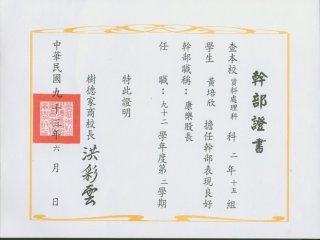 幹部證書
查本校資料處理科二年十五組
學生 黃培欣 擔任幹部表現良好
幹部職稱：康樂股長
任職：九十二學年度第二學期
特此證明
樹德家商校長 洪彩雲
中華民國九十三年六月 日